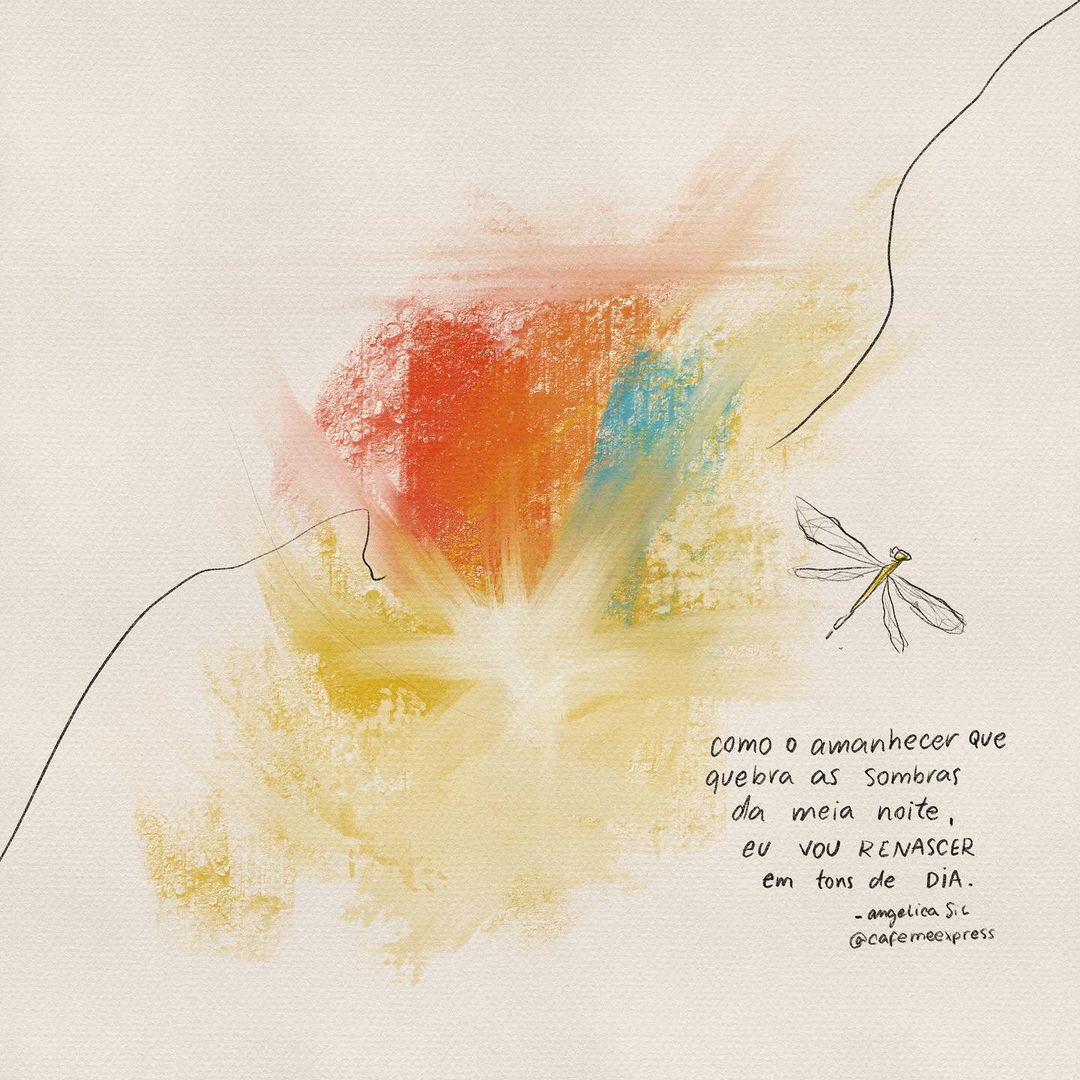 como o amanhecer que
quebra as sombras
da meia noite,
eu vou RENASCER
em tons de DiA.
- angelica Sil
@cafemeexpress